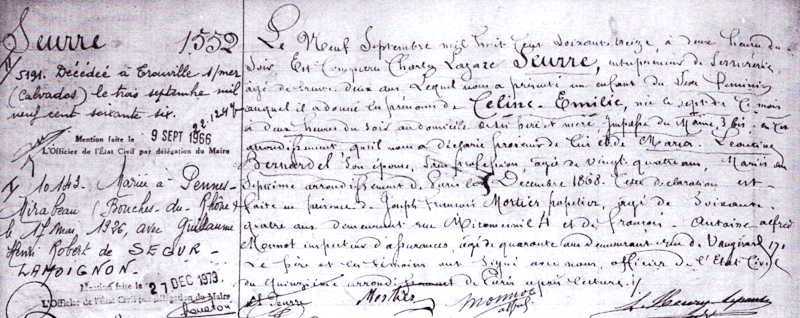 Seurre 1.552
5191. Décédée à Trouville s/mer
(Calvados) le trois septembre mil
neuf cent soixante six.
Mention faite le 9 SEPT 1966
L'Officier de l'État Civil par délégation du Maire
10.143. Mariée à Pennes-
Mirabeau (Bouches-du-Rhône)
le 17 mai 1926, avec Guillaume
Henri Robert de SEGUR-
LAMOIGNON.
Mention faite le 27 DEC 1979
L'Officier de l'État Civil par délégation du Maire
Le Neuf Septembre mil huit Cent Soixante treize, à deux heures du
Soir, Est Comparu Charles Lazare Seurre, entrepreneur de Serrurerie,
âgé de trente deux ans. Lequel nous a présenté un enfant du Sexe féminin
auquel il a donné les prénoms de Céline-Emilie, née le sept de Ce mois
à deux heures du soir au domicile de ses père et mère, impasse du Maine, 3 bis, en cet
arrondissement, qu'il nous a déclaré provenir de lui et de Maria Léontine
Bernardel Son épouse, Sans profession, âgée de vingt quatre ans, Mariés au
Septième arrondissement de Paris le Décembre 1868. Cette déclaration est
faite en présence de Joseph François Mortier papetier, âgé de Soixante
quatre ans, demeurant rue Miromesnil 4 et de François Antoine alfred
Monnot inspecteur d'assurances, âgé de quarante ans demeurant rue de Vaugirard 171
Le père et les témoins ont Signé avec nous, officier de l'Etat Civil
du Quinzième arrondissement de Paris après lecture.
Seurre Mortier Monnot